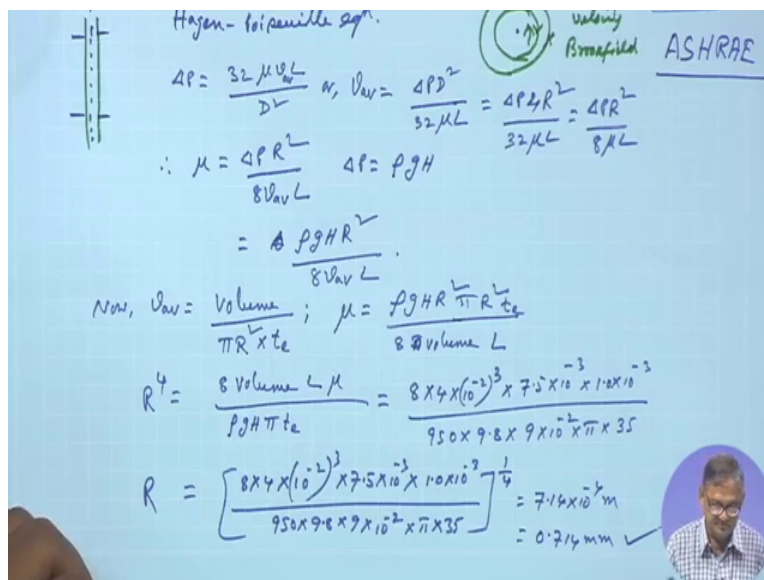 Hagen-Poiseuille eqn.
Velocity
Brookfield
ASHRAE
ΔP = 32 μ v_av L / D² or, v_av = ΔPD² / 32 μL = ΔP4R² / 32 μL = ΔPR² / 8 μL
∴ μ = ΔPR² / 8 v_av L ΔP = ρgH
= ρgHR² / 8 v_av L .
Now, v_av = Volume / πR² × te ; μ = ρgHR² πR² te / 8 volume L
R⁴ = 8 Volume L μ / ρgHπte = 8×4×(10⁻²)³ × 7.5×10⁻³ × 1.0×10⁻³ / 950×9.8×9×10⁻²×π×35
R = [8×4×(10⁻²)³×7.5×10⁻³×1.0×10⁻³ / 950×9.8×9×10⁻²×π×35]^1/4 = 7.14×10⁻⁴ m
= 0.714 mm ✓